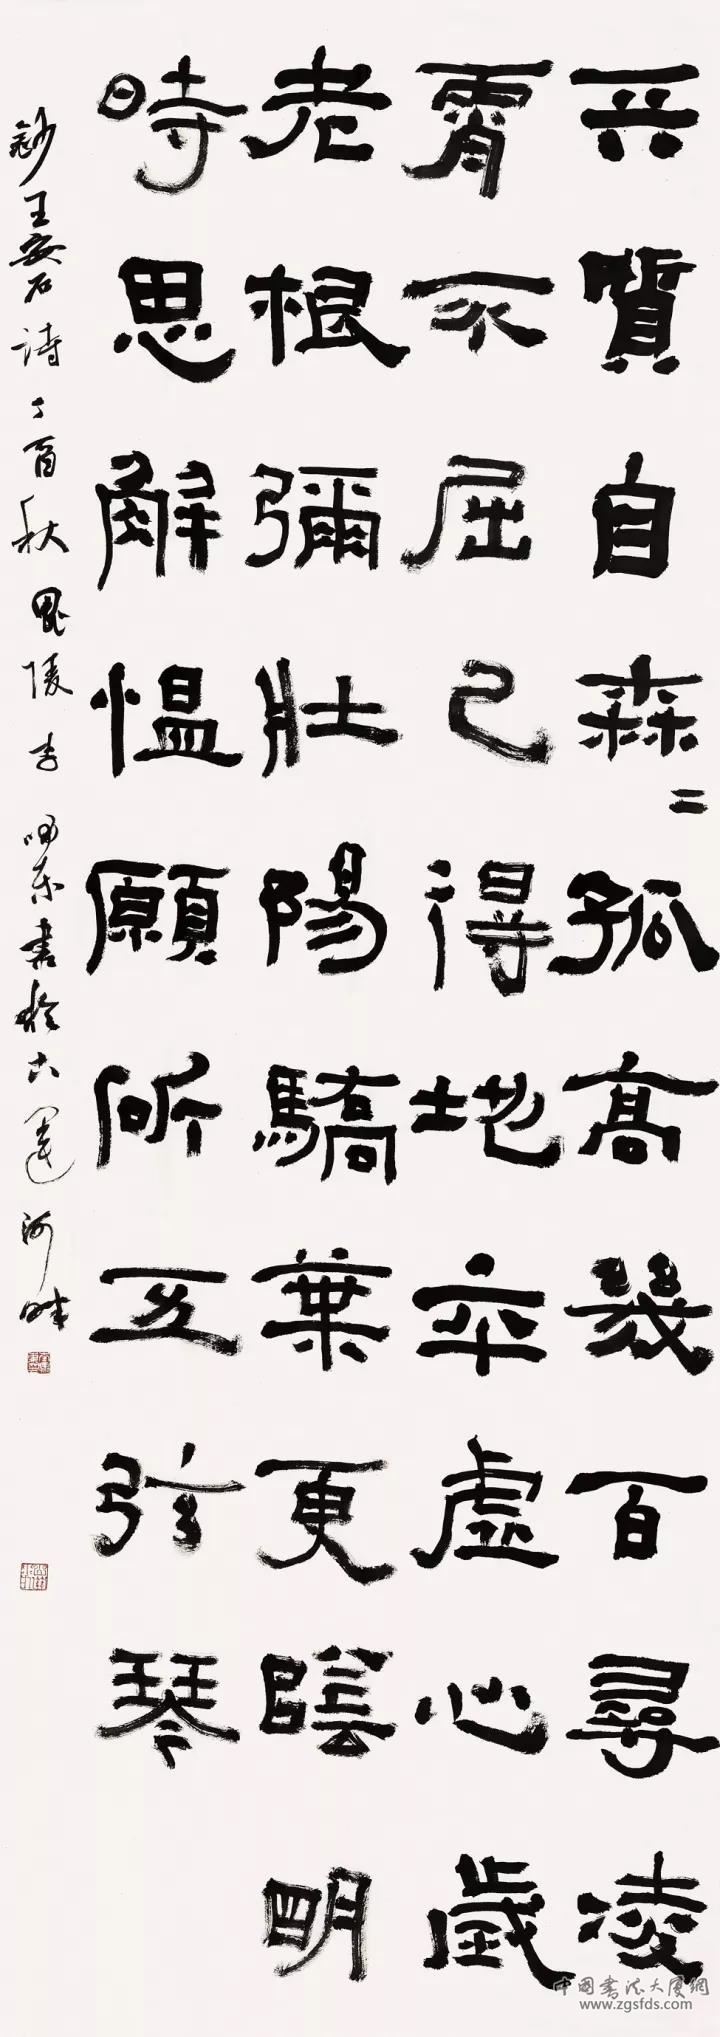 天質自森〻孤高幾百尋凌
霄不屈己得地本虛心歲
老根彌壯陽驕葉更陰明
時思解愠願斫五弦琴
鈔王安石詩丁酉秋毘陵李东書於古運河畔
中国书法大厦網
www.zgsfds.com